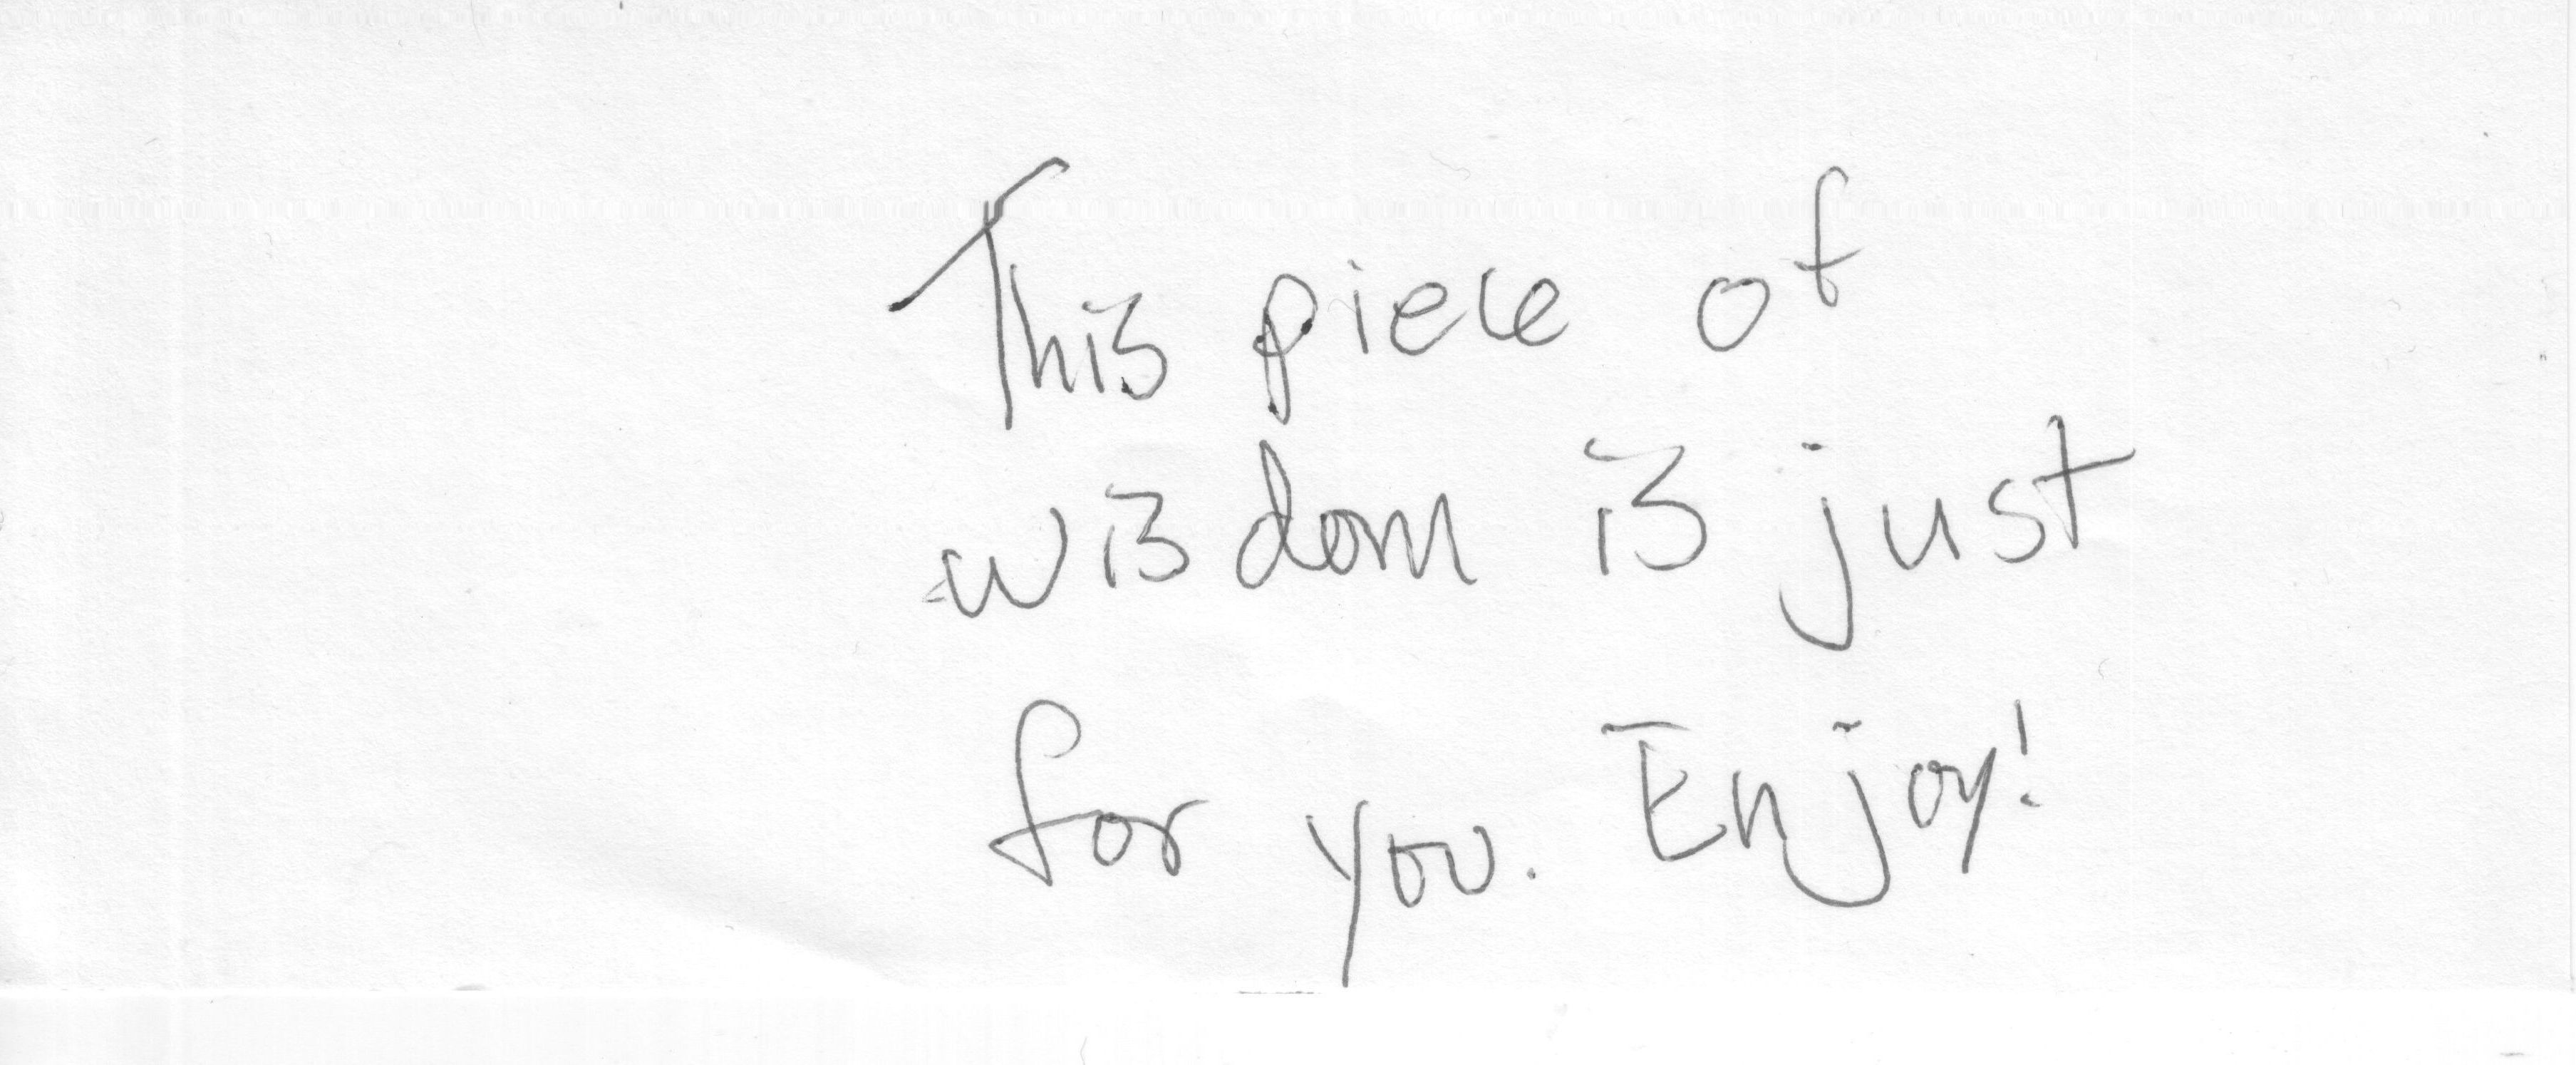 This piece of
wisdom is just
for you. Enjoy!